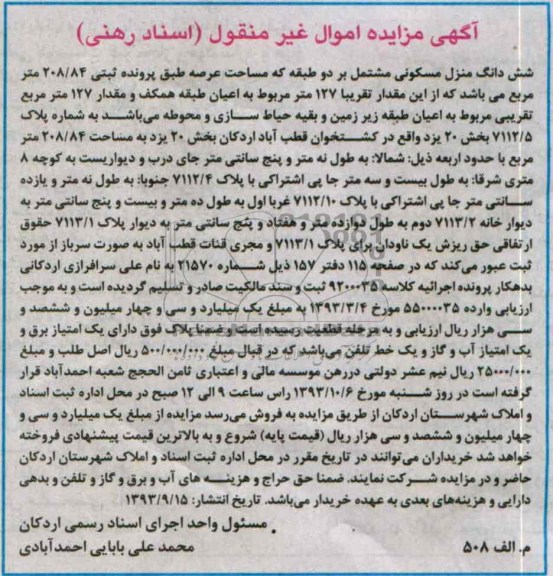 آگهی مزایده اموال غیر منقول (اسناد رهنی)
شش دانگ منزل مسکونی مشتمل بر دو طبقه که مساحت عرصه طبق پرونده ثبتی ۲۰۸/۸۴ متر
مربع می باشد که از این مقدار تقریبا ۱۲۷ متر مربوط به اعیان طبقه همکف و مقدار ۱۲۷ متر مربع
تقریبی مربوط به اعیان طبقه زیر زمین و بقیه حیاط سازی و محوطه می‌باشد به شماره پلاک
۷۱۱۲/۵ بخش ۲۰ یزد واقع در کشتخوان قطب آباد اردکان بخش ۲۰ یزد به مساحت ۲۰۸/۸۴ متر
مربع با حدود اربعه ذیل: شمالا: به طول نه متر و پنج سانتی متر جای درب و دیواریست به کوچه ۸
متری شرقا: به طول بیست و سه متر جا پی اشتراکی با پلاک ۷۱۱۲/۴ جنوبا: به طول نه متر و یازده
سانتی متر جا پی اشتراکی با پلاک ۷۱۱۲/۱۰ غربا اول به طول ده متر و بیست و پنج سانتی متر به
دیوار خانه ۷۱۱۳/۲ دوم به طول دوازده متر و هفتاد و پنج سانتی متر به دیوار پلاک ۷۱۱۳/۱ حقوق
ارتفاقی حق ریزش یک ناودان برای پلاک ۷۱۱۳/۱ و مجری قنات قطب آباد به صورت سرباز از مورد
ثبت عبور می‌کند که در صفحه ۱۱۵ دفتر ۱۵۷ ذیل شماره ۲۱۵۷۰ به نام علی سرافرازی اردکانی
بدهکار پرونده اجرائیه کلاسه ۹۲۰۰۰۳۵ ثبت و سند مالکیت صادر و تسلیم گردیده است و به موجب
ارزیابی وارده ۵۵۰۰۰۳۵ مورخ ۱۳۹۳/۳/۴ به مبلغ یک میلیارد و سی و چهار میلیون و ششصد و
سی هزار ریال ارزیابی و به مرحله قطعیت رسیده است و ضمنا پلاک فوق دارای یک امتیاز برق و
یک امتیاز آب و گاز و یک خط تلفن می‌باشد که در قبال مبلغ ۵۰۰/۰۰۰/۰۰۰ ریال اصل طلب و مبلغ
۲۵۰۰۰/۰۰۰ ریال نیم عشر دولتی دررهن موسسه مالی و اعتباری ثامن الحجج شعبه احمدآباد قرار
گرفته است در روز شنبه مورخ ۱۳۹۳/۱۰/۶ راس ساعت ۹ الی ۱۲ صبح در محل اداره ثبت اسناد
و املاک شهرستان اردکان از طریق مزایده به فروش می‌رسد مزایده از مبلغ یک میلیارد و سی و
چهار میلیون و ششصد و سی هزار ریال (قیمت پایه) شروع و به بالاترین قیمت پیشنهادی فروخته
خواهد شد خریداران می‌توانند در تاریخ مقرر در محل اداره ثبت اسناد و املاک شهرستان اردکان
حاضر و در مزایده شرکت نمایند. ضمنا حق حراج و هزینه های آب و برق و گاز و تلفن و بدهی
دارایی و هزینه‌های بعدی به عهده خریدار می‌باشد. تاریخ انتشار: ۱۳۹۳/۹/۱۵
مسئول واحد اجرای اسناد رسمی اردکان
م. الف ۵۰۸ محمد علی بابایی احمدآبادی